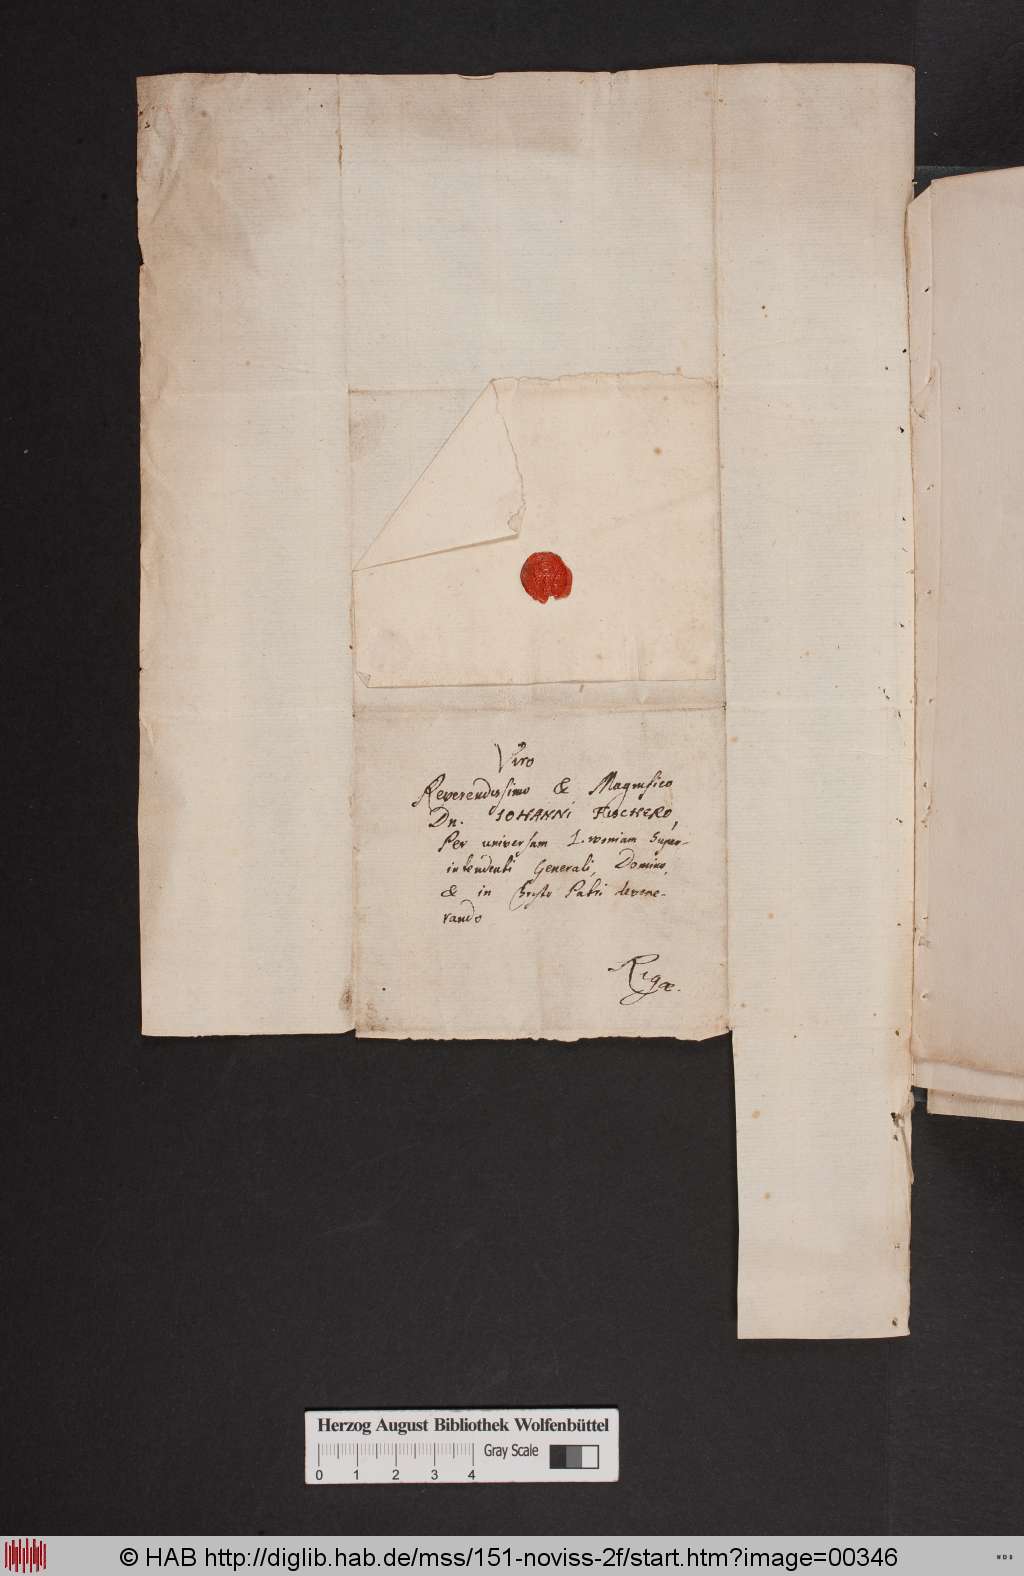 Viro
Reverendissimo & Magnifico
Dn. IOHANNI FISCHERO,
Per universam Livoniam Super-
intendenti Generali, Domino,
& in Christo Patri devene-
rando
Rigæ.
Herzog August Bibliothek Wolfenbüttel
Gray Scale
0 1 2 3 4
© HAB http://diglib.hab.de/mss/151-noviss-2f/start.htm?image=00346